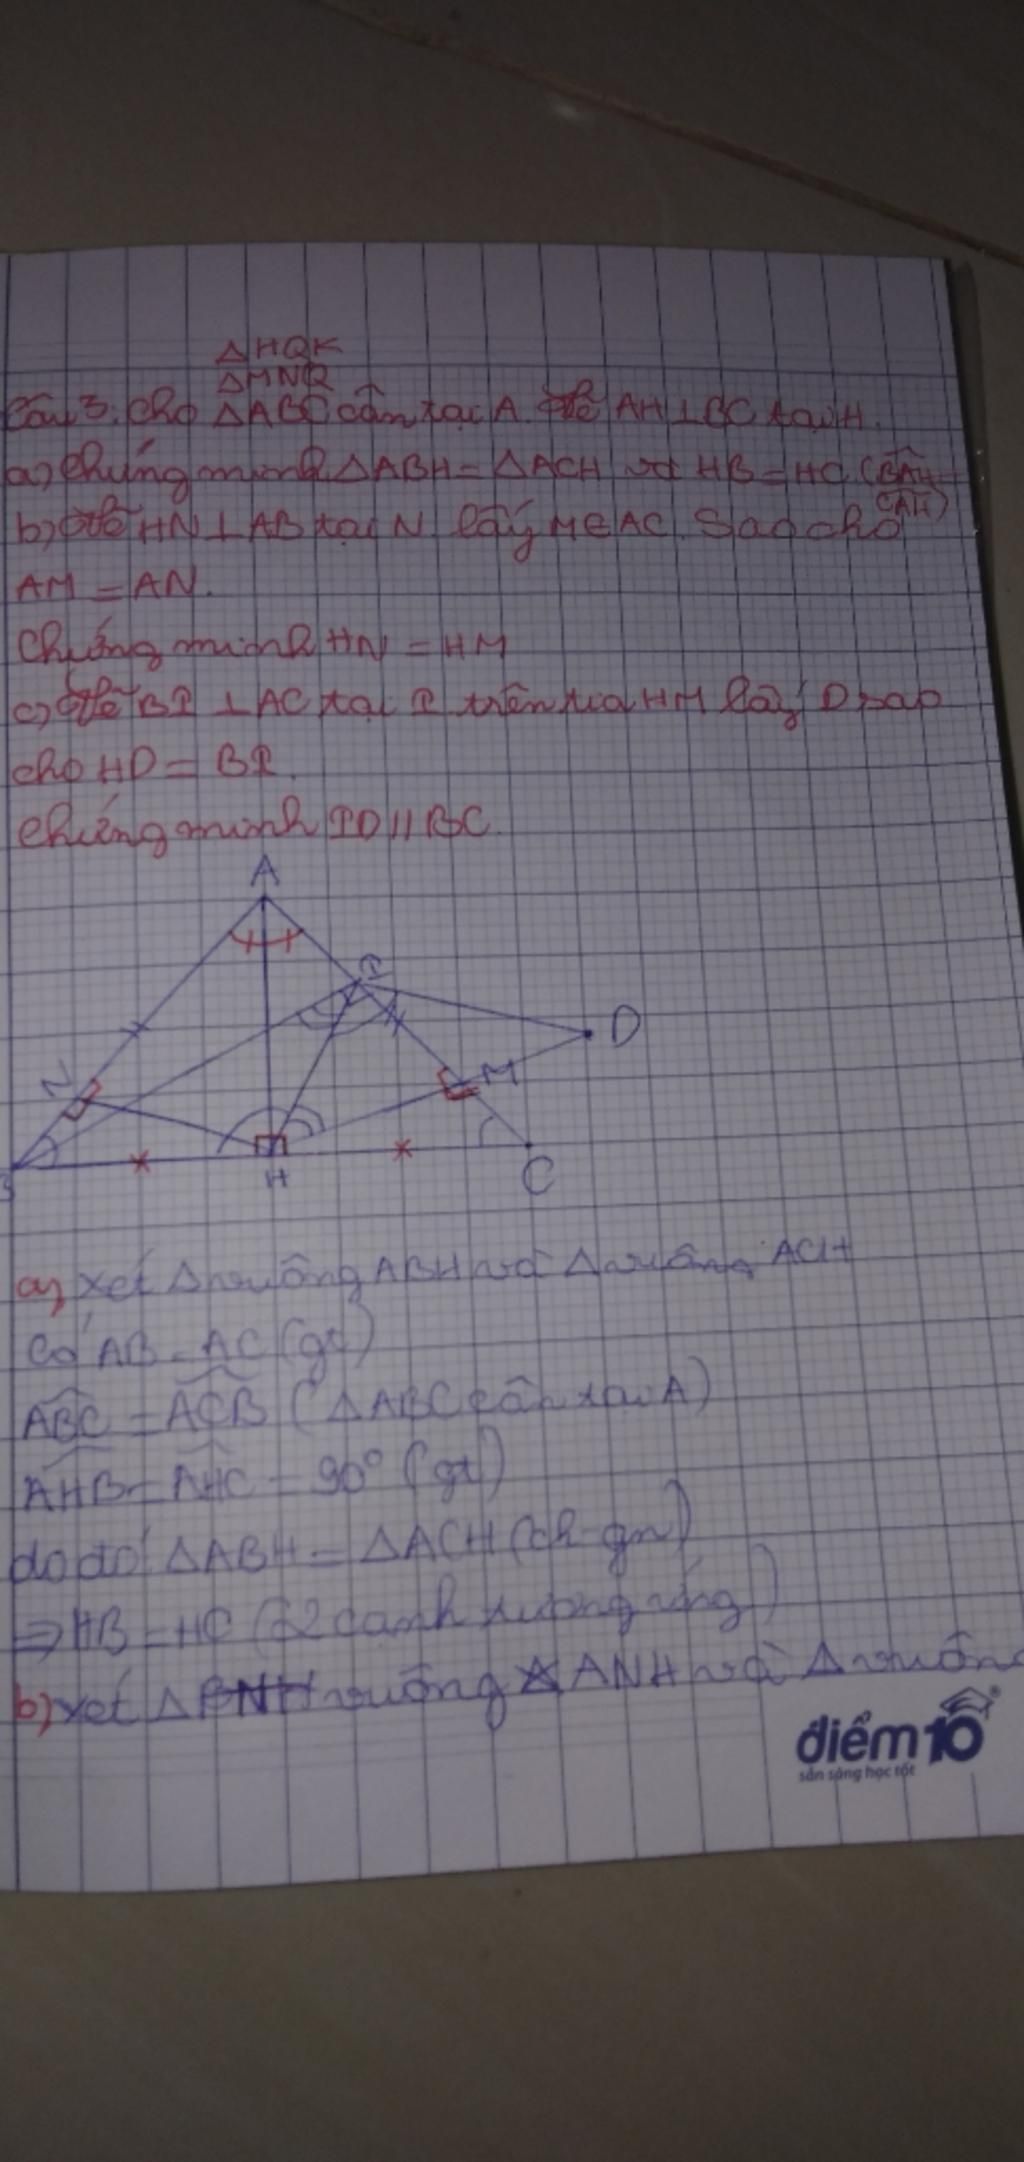 △HQK
△MNQ
Câu 3. Cho △ABC cân tại A. Kẻ AH⊥BC tại H.
a) Chứng minh △ABH = △ACH và HB = HC (BAH =
CAH)
b) Kẻ HN ⊥ AB tại N. lấy M∈AC. Sao cho
AM = AN.
Chứng minh HN = HM
c) Kẻ BI ⊥AC tại I trên tia HM lấy D sao
cho HD = BI.
Chứng minh ID // BC.
A
D
N
M
H
C
a) xét △vuông ABH và △vuông ACH
Có AB = AC (gt)
ABC = ACB (△ABC cân tại A)
AHB = AHC = 90° (gt)
do đó △ABH = △ACH (ch-gn)
⇒ HB = HC (2 cạnh tương ứng)
b) xét △ vuông ANH và △ vuông
điểm 10
sẵn sàng học tốt